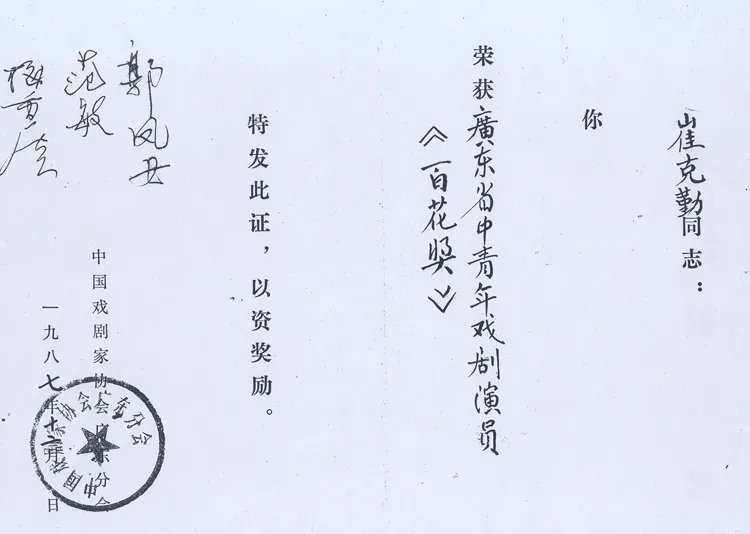 崔克勤同志：
你
荣获廣东省中青年戏剧演员
《百花奖》
特发此证，以资奖励。
郭凤女
范敏
中国戏剧家协会广东分会
一九八七年十二月 日
中国戏剧家协会广东分会